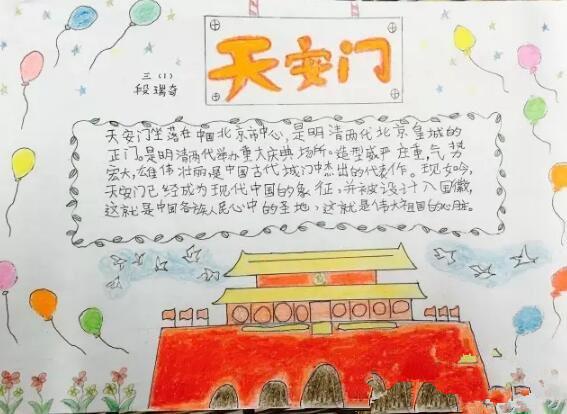 天安门
三（1）
段瑞奇
天安门坐落在中国北京市中心，是明清两代北京皇城的
正门。是明清两代举办重大庆典场所。造型威严庄重，气势
宏大，雄伟壮丽，是中国古代城门中杰出的代表作。现如今，
天安门已经成为现代中国的象征，并被设计入国徽，
这就是中国各族人民心中的圣地，这就是伟大祖国的心脏。